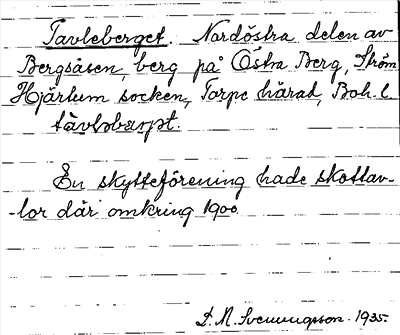 Tavleberget. Nordöstra delen av
Bergsåsen, berg på Östra Berg, Ström
Hjärtum socken, Torpe härad, Boh. l
tàvləbærjət.
En skytteförening hade skottav-
-lor där omkring 1900
S. M. Svenungsson. 1935.